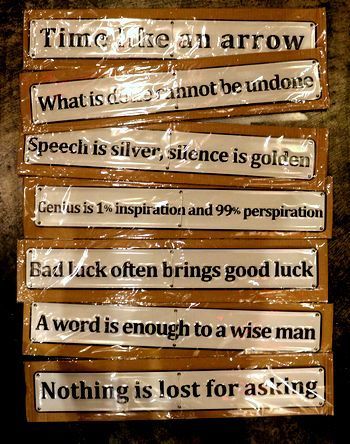 Time like an arrow
What is done cannot be undone
Speech is silver, silence is golden
Genius is 1% inspiration and 99% perspiration
Bad luck often brings good luck
A word is enough to a wise man
Nothing is lost for asking